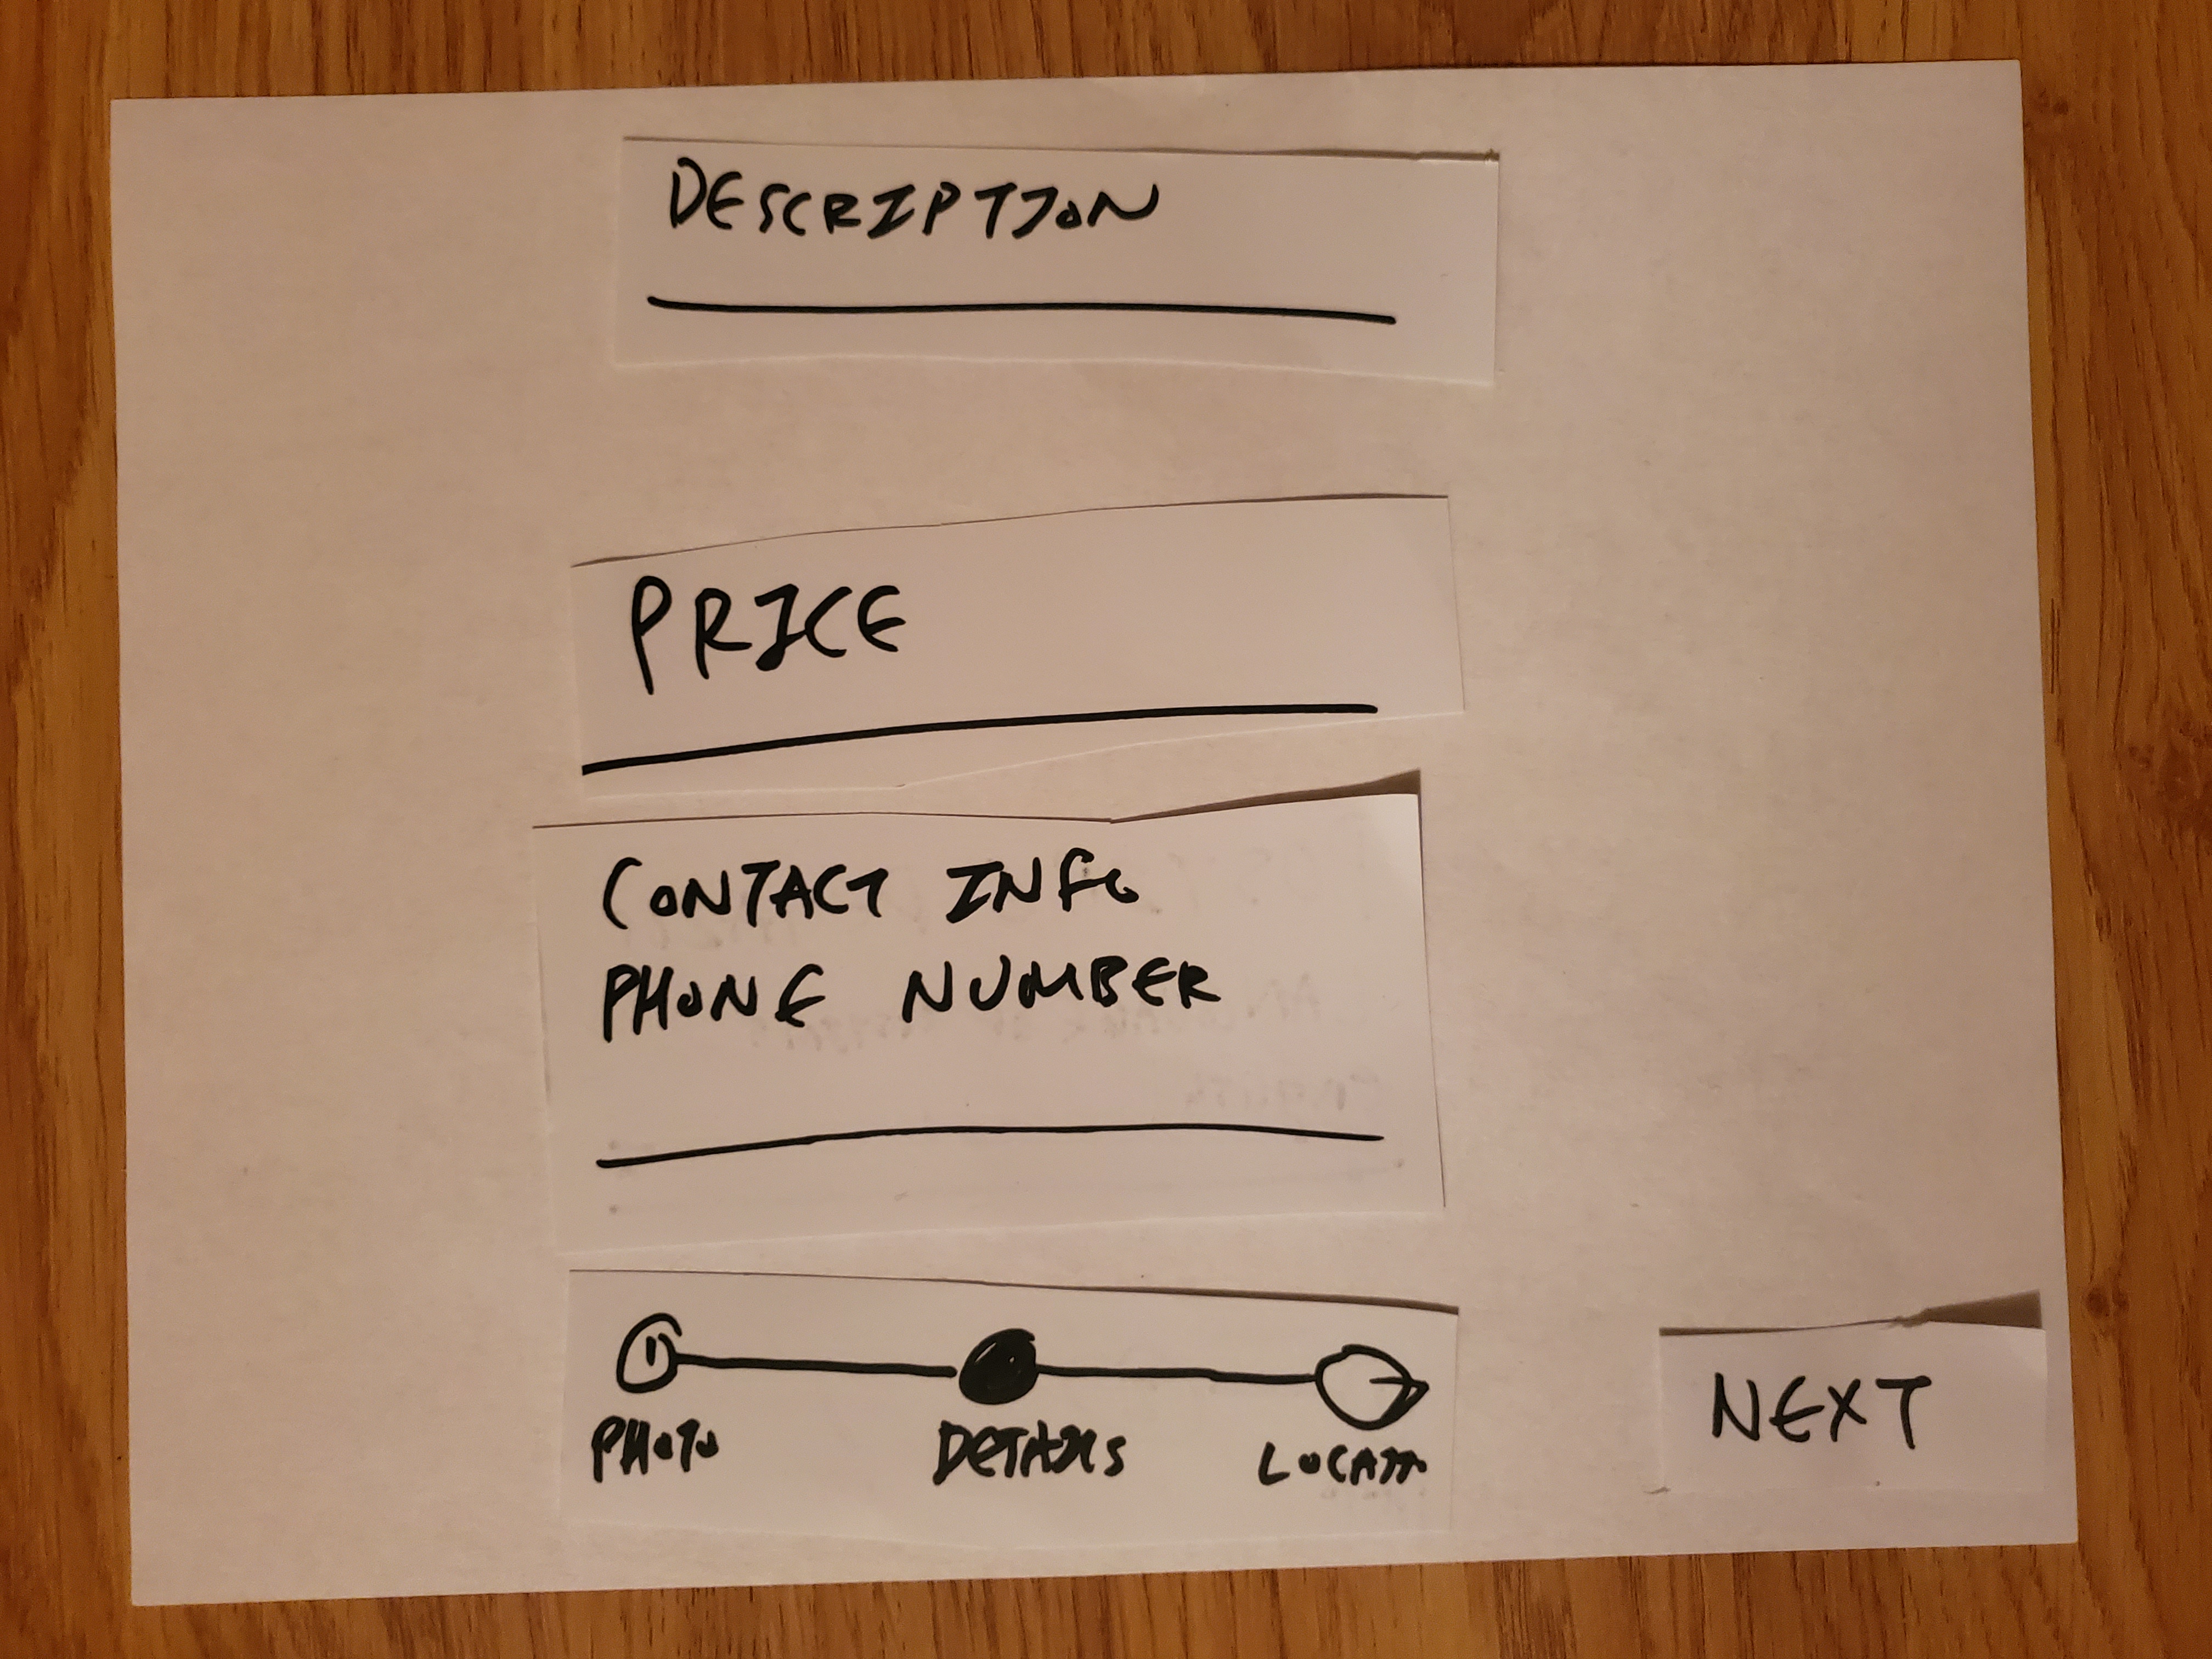 DESCRIPTION
PRICE
CONTACT INFO
PHONE NUMBER
PHOTO DETAILS
NEXT